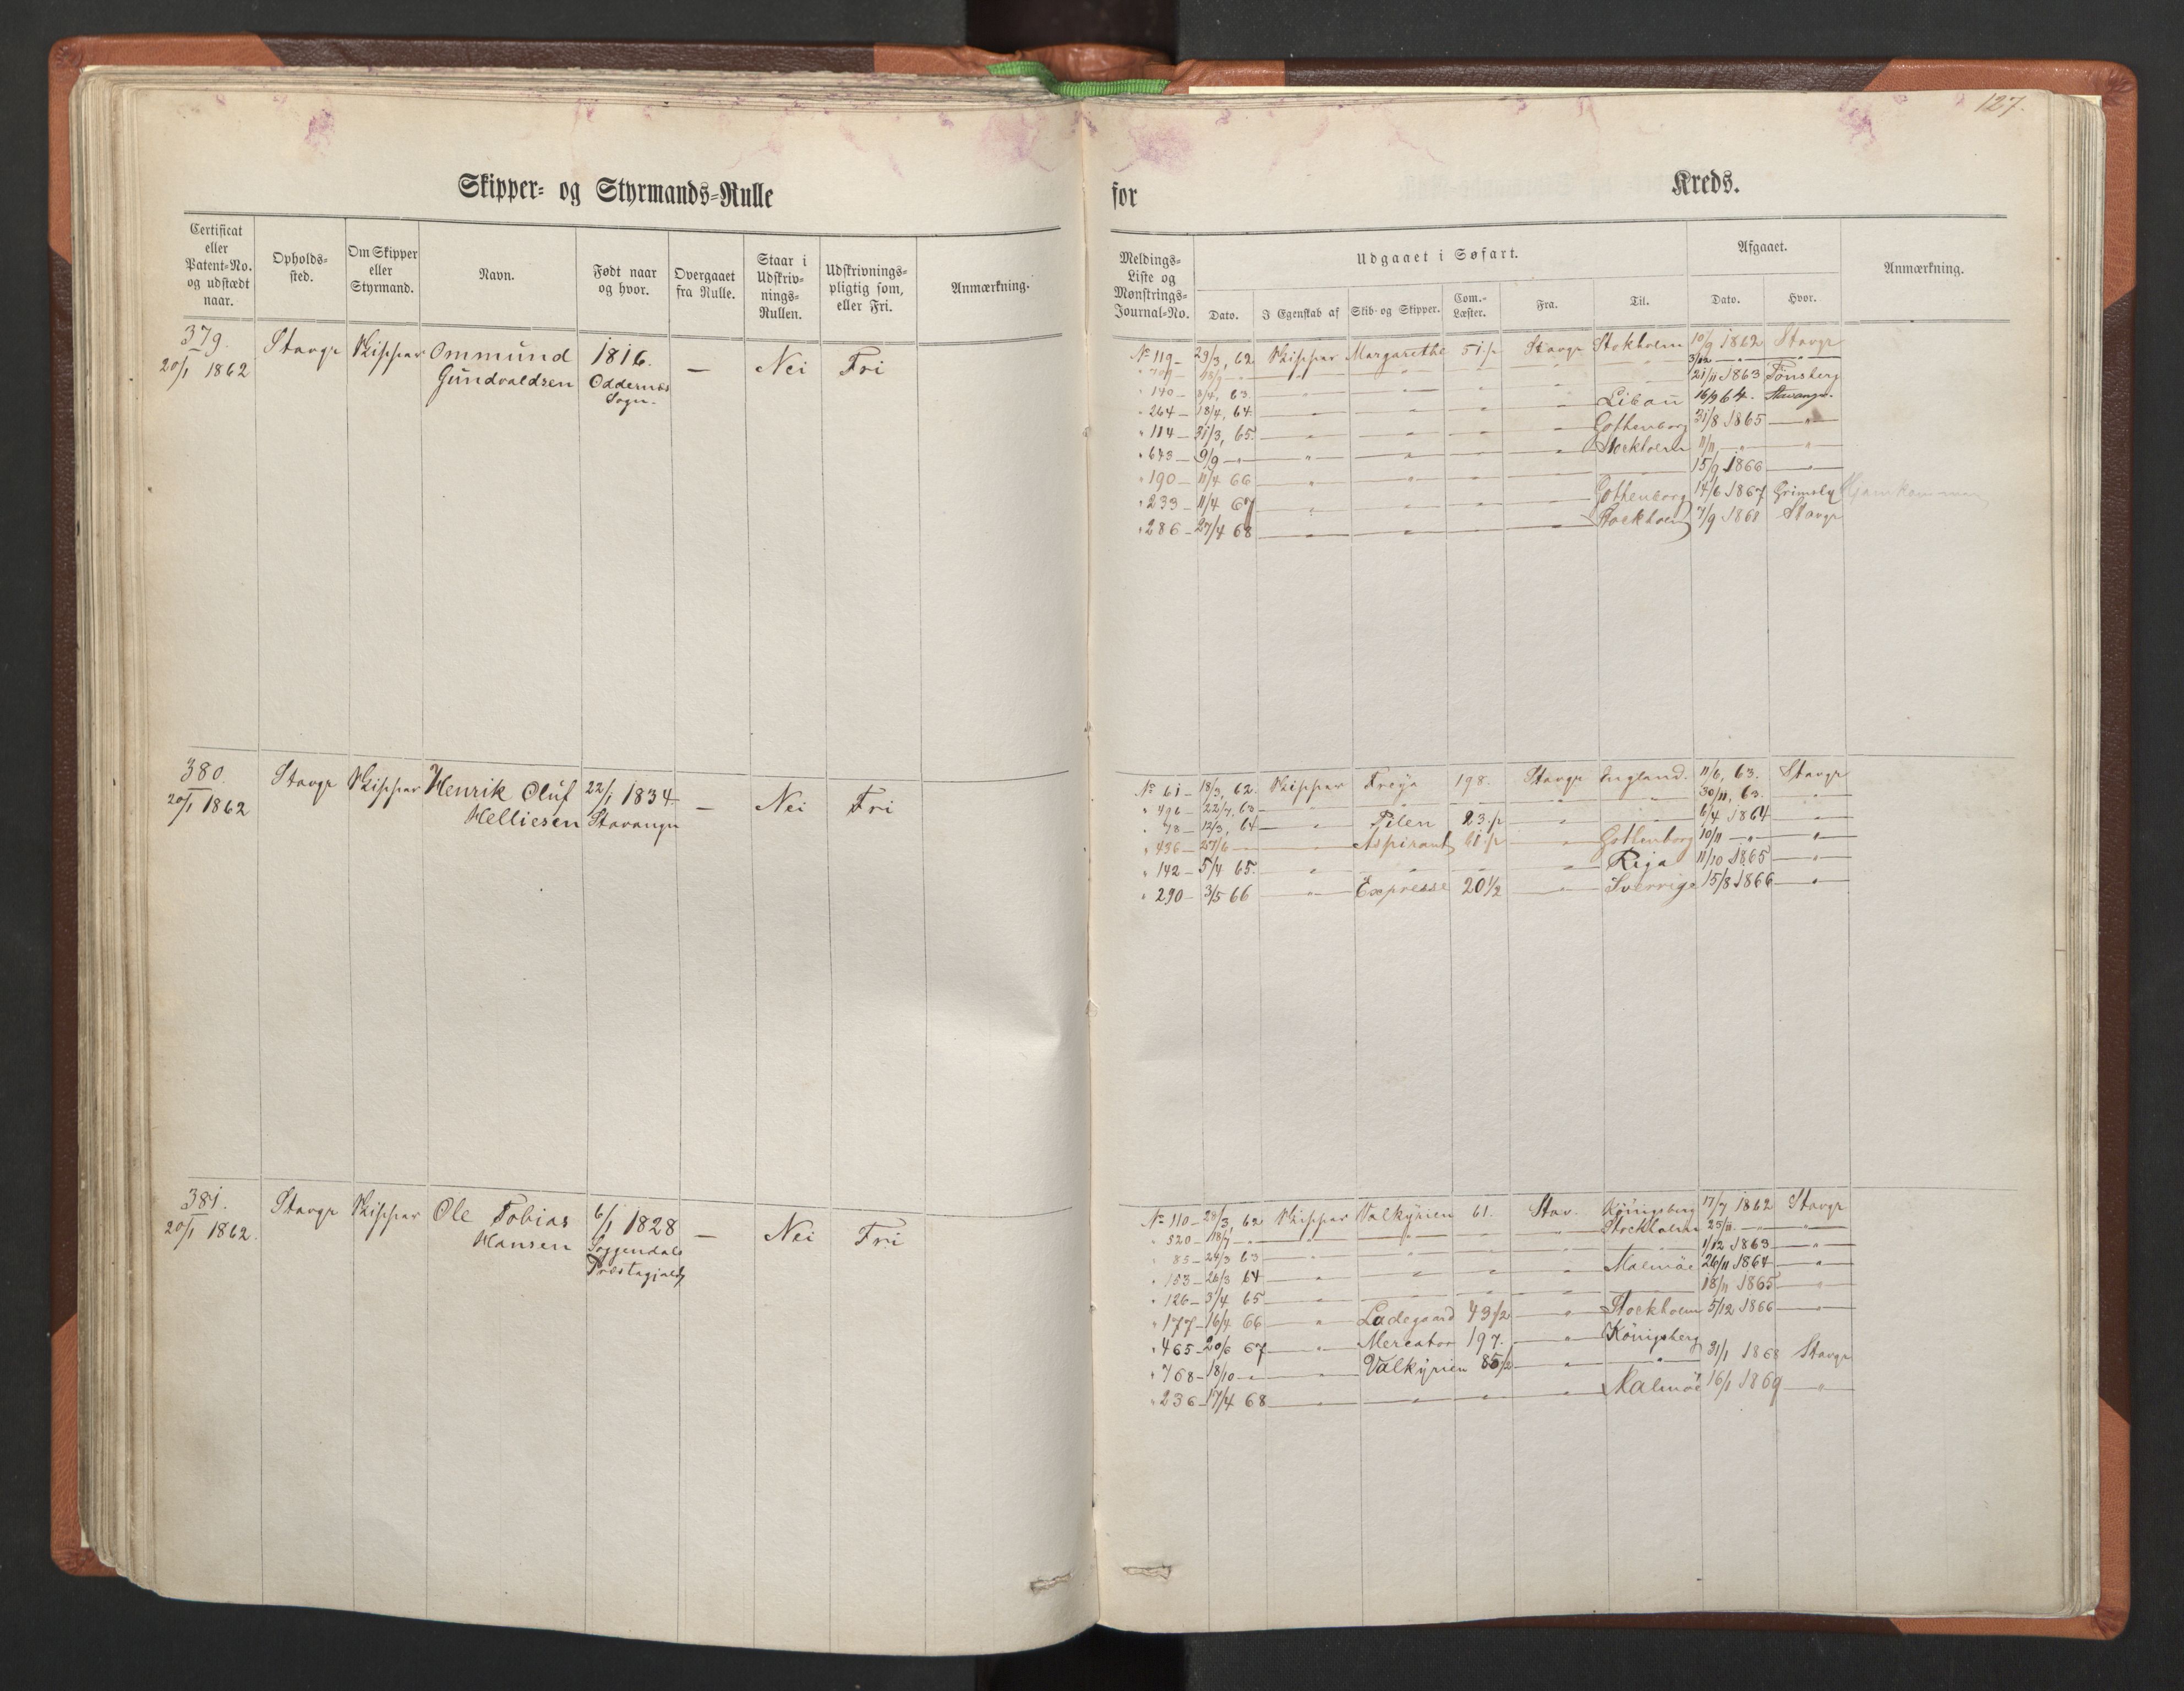 127.
Skipper- og Styrmands-Rulle
for Kreds.
Certificat eller Patent-No. og udstædt naar.
Opholds-sted.
Om Skipper eller Styrmand.
Navn.
Født naar og hvor.
Overgaaet fra Rulle.
Staar i Udskriv-nings-Rullen.
Udskrivnings-pligtig som, eller Fri.
Anmærkning.
Meldings-Liste og Mønstrings-Journal-No.
Udgaaet i Søfart.
Dato.
I Egenskab af
Skib- og Skipper.
Com.-Læster.
Fra.
Til.
Afgaaet.
Dato.
Hvor.
Anmærkning.
379. Stavgr Skipper Ommund 1816. — Nei Fri
20/1 1862 Gundvaldsen Oddernes
Sogn.
No 119 – 29/3, 62 Skipper Margarethe 51 p Stavgr Stokholm 10/9 1862 Stavgr
" 709 — " " " " 3/12 — " — "
" 140 – 8/4, 63 " " " " " 21/11 1863 Tønsberg
" 264 – 18/4, 64 " " " " Libau 16/9 64. Stavanger
" 114 – 31/3, 65 " " " " Gothenborg 31/8 1865 "
" 643 – 9/9 — " " " " " Stockholm 11/11 — " "
" 190 – 11/4 66 " " " " " 15/9 1866 "
" 233 – 11/4 67 " " " " Gothenborg 14/6 1867 Grimsby Hjemkommen
" 286 – 27/4 68 " " " " Stockholm 7/9 1868 Stavgr
380. Stavgr Skipper Henrik Oluf 22/1 1834 — Nei Fri
20/1 1862 Helliesen Stavanger
No 61 – 18/3, 62. Skipper Freya 198. Stavgr England. 11/6, 63. Stavgr
" 496 – 22/7, 63 " " " " " 30/11, 63. "
" 78 – 12/3, 64 " Pilen 23 p " " 6/4 1864 "
" 436 – 27/6 — " Aspirant 61 p " Gothenborg 10/11 — " "
" 142 – 5/4 65. " " " " Riga 11/10 1865 "
" 290 – 3/5 66 " Expresse 20 1/2 " Sverrige 15/8 1866 "
381. Stavgr Skipper Ole Tobias 6/1 1828 — Nei Fri
20/1 1862. Hansen Soggendals
Præstegjæld
No 110 – 28/3, 62 Skipper Valkyrien 61. Stav. Königsberg 17/7 1862 Stavgr
" 520 – 18/7 — " " " " " Stockholm 25/11 — " "
" 85 – 24/3 63 " " " " " 1/12 1863 "
" 153 – 26/3 64 " " " " Malmöe 26/11 1864 "
" 126 – 3/4 65 " " " " " 18/11 1865 "
" 177 – 16/4 66 " Ladegaard 43 1/2 " Stockholm 5/12 1866 "
" 465 – 20/6 67 " Mercator 197. " Königsberg
" 768 – 18/10 — " " Valkyrien 85 1/2 " " 31/1 1868 Stavgr
" 236 – 17/4 68 " " " " Malmöe 16/1 1869 "